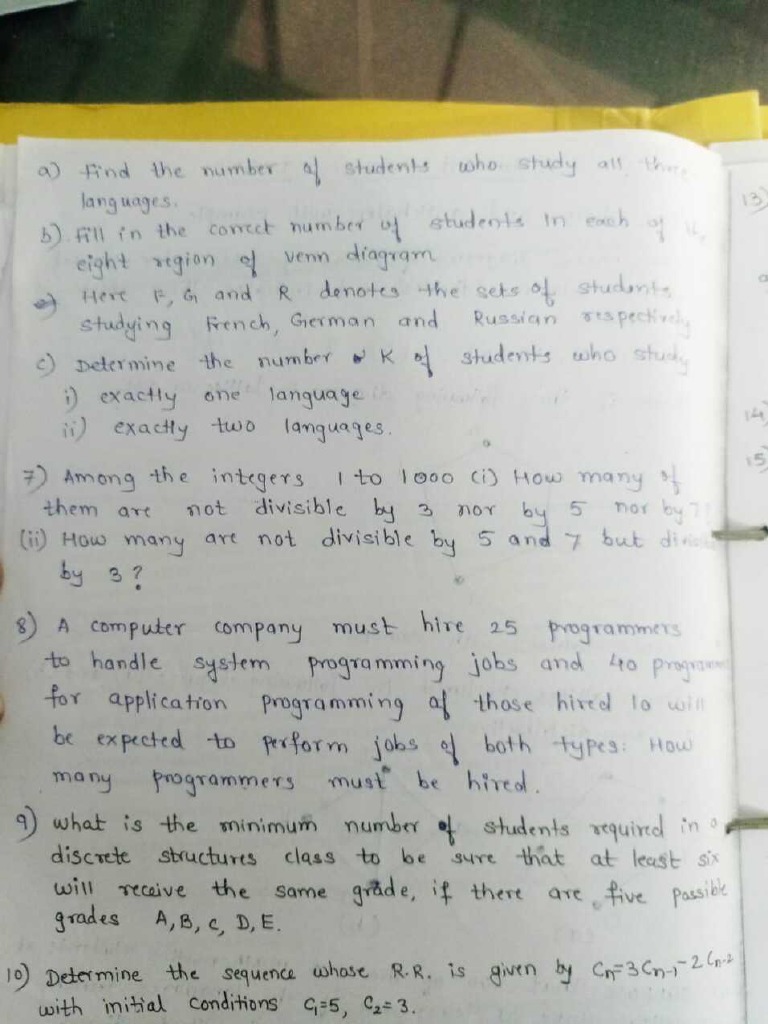 a) Find the number of students who study all three
languages.
b) Fill in the correct number of students in each of the
eight region of venn diagram
Here F, G and R denotes the sets of students
studying French, German and Russian respectively
c) Determine the number K of students who study
i) exactly one language
ii) exactly two languages.
7) Among the integers 1 to 1000 (i) How many of
them are not divisible by 3 nor by 5 nor by 7?
(ii) How many are not divisible by 5 and 7 but
by 3?
8) A computer company must hire 25 programmers
to handle system programming jobs and 40
for application programming of those hired 10 will
be expected to perform jobs of both types: How
many programmers must be hired.
9) what is the minimum number of students required in a
discrete structures class to be sure that at least six
will receive the same grade, if there are five possible
grades A, B, C, D, E.
10) Determine the sequence whose R.R. is given by Cn=3Cn-1-2Cn-2
with initial conditions C1=5, C2=3.
13)
14)
15)